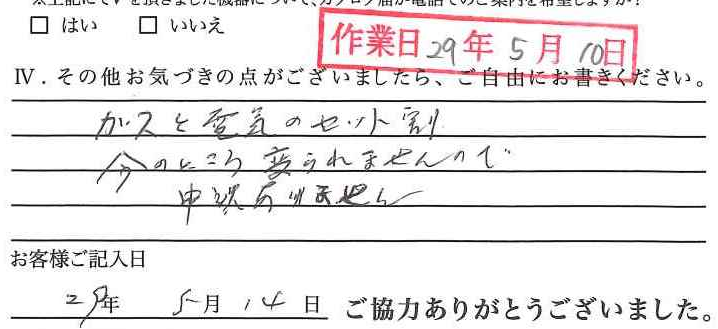 ※上記にて✓を頂きました機器について、カタログ届か電話でのご案内を希望しますか?
□ はい □ いいえ
作業日 29年 5月 10日
Ⅳ．その他お気づきの点がございましたら、ご自由にお書きください。
ガスと電気のセット割
今のところ変えられませんので
申訳ありません
お客様ご記入日
29年 5月 14日 ご協力ありがとうございました。